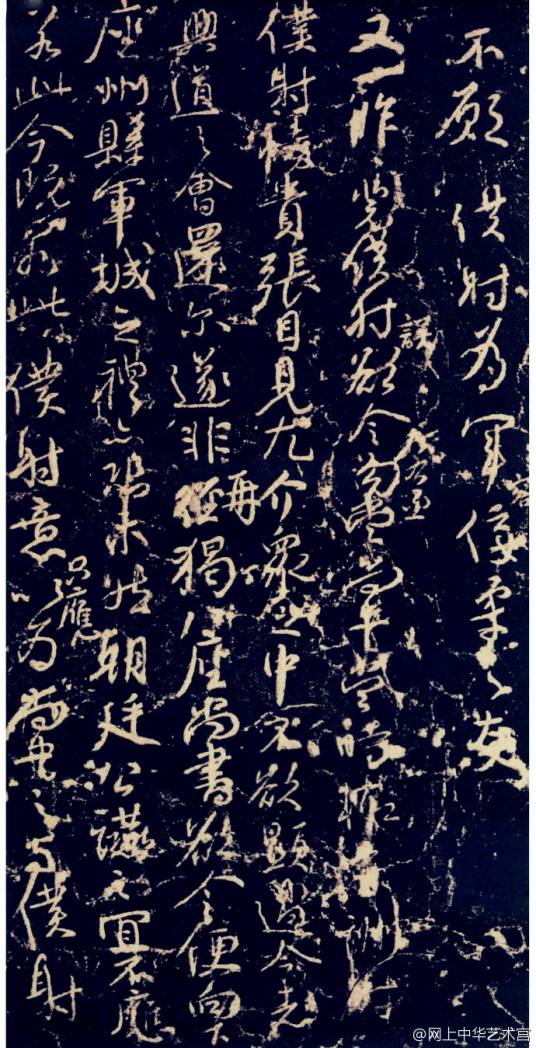 不願僕射為軍佞柔之友
又一昨裴僕射誤欲令左右丞勾當尚書當時輒有酬對
僕射恃貴張目見尤介眾之中不欲顯過今者
興道之會還尔遂非再猲八座尚書欲令便向下
座州縣軍城之禮亦恐未然朝廷公讌之宜不應
若此今既若此僕射意只應為尚書之與僕射
@网上中华艺术宫